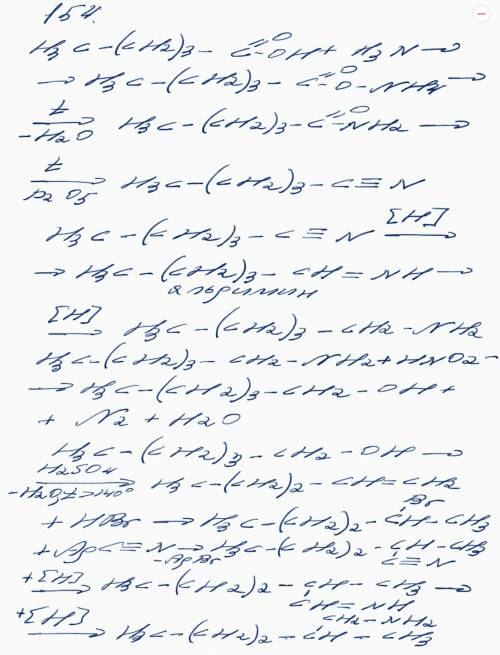 154.
H3C-(CH2)3-C(=O)-OH + H3N →
→ H3C-(CH2)3-C(=O)-O-NH4 →
t / -H2O → H3C-(CH2)3-C(=O)-NH2 →
t / P2O5 → H3C-(CH2)3-C≡N
H3C-(CH2)3-C≡N [H] →
→ H3C-(CH2)3-CH=NH →
альдимин
[H] → H3C-(CH2)3-CH2-NH2
H3C-(CH2)3-CH2-NH2+HNO2-
→ H3C-(CH2)3-CH2-OH+
+ N2 + H2O
H3C-(CH2)3-CH2-OH →
H2SO4 / -H2O, t>140° → H3C-(CH2)2-CH=CH2
Br
+ HBr → H3C-(CH2)2-CH-CH3
+ AgC≡N → -AgBr H3C-(CH2)2-CH-CH3
C≡N
+[H] → H3C-(CH2)2-CH-CH3 →
CH=NH
CH2-NH2
+[H] → H3C-(CH2)2-CH-CH3